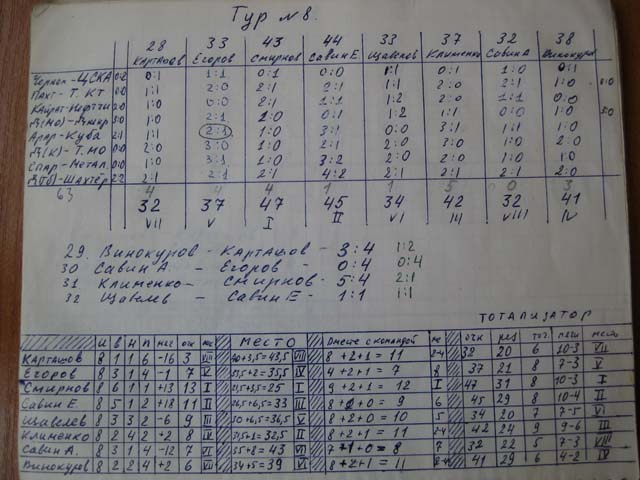 Тур №8.
28 33 43 44 33 37 32 38
Карташов Егоров Смирнов Савин Е Щавелев Клименко Савин А Винокуров
Черном - ЦСКА 0:2 0:1 1:1 0:1 0:0 1:1 0:1 1:0 0:1
Пахт - Т. КТ 1:0 2:0 2:1 2:1 1:1 2:0 2:1 1:0
Кайрат - Нефтчи 1:0 0:0 2:1 1:1 1:2 2:0 1:1 0:0
Д(Мо) - 0:1 2:1 1:0 2:0 1:2 1:1 0:0 1:0
Арар - Куба 2:1 1:1 2:1 1:0 3:1 0:0 3:1 1:1 1:0
Д(К) - Т. МО 2:0 3:0 1:0 2:1 2:0 3:0 1:0 2:0
Спар - Метал. 1:0 3:1 1:0 3:2 2:0 2:0 1:0 1:0
Д(Тб) - Шахтёр 2:2 2:1 2:1 2:1 4:2 2:1 2:1 2:1 2:0
63 4 4 4 1 1 5 0 3
32 37 47 45 34 42 32 41
VII V I II VI III VIII IV
29. Винокуров - Карташов - 3:4 1:2
30 Савин А. - Егоров - 0:4 0:4
31 Клименко - Смирнов - 5:4 2:1
32 Щавелев - Савин Е - 1:1 1:1
Тотализатор
и в н п мяч очк место Место Вместе с командой очк рез точ место
Карташов 8 1 1 6 -16 3 VIII 40+3,5=43,5 VIII 8+2+1=11 2-4 32 20 6 10-3 VII
Егоров 8 3 1 4 -1 7 V 8 4+2+1=7 8 37 21 8 7-3 V
Смирнов 8 6 1 1 +13 13 I 21,5+3,5=25 I 9+2+1=12 I 47 31 8 10-3 I
Савин Е. 8 5 1 2 +18 11 II 26,5+6,5=33 III 8+0+0=9 6 45 29 8 10-4 II
Щавелев 8 3 3 2 -6 9 III 30+6,5=36,5 V 8+2+0=10 5 34 20 7 7-5 VI
Клименко 8 2 4 2 +2 8 IV 31,5+1=32,5 II 8+2+1=11 2-4 42 24 9 9-6 III
Савин А. 8 3 1 4 -12 7 VI 35+8=43 VII 7+1+0=8 7 32 22 5 7-3 VIII
Винокуров 8 2 2 4 +2 6 VII 34+5=39 VI 8+2+1=11 2-4 41 29 6 4-2 IV